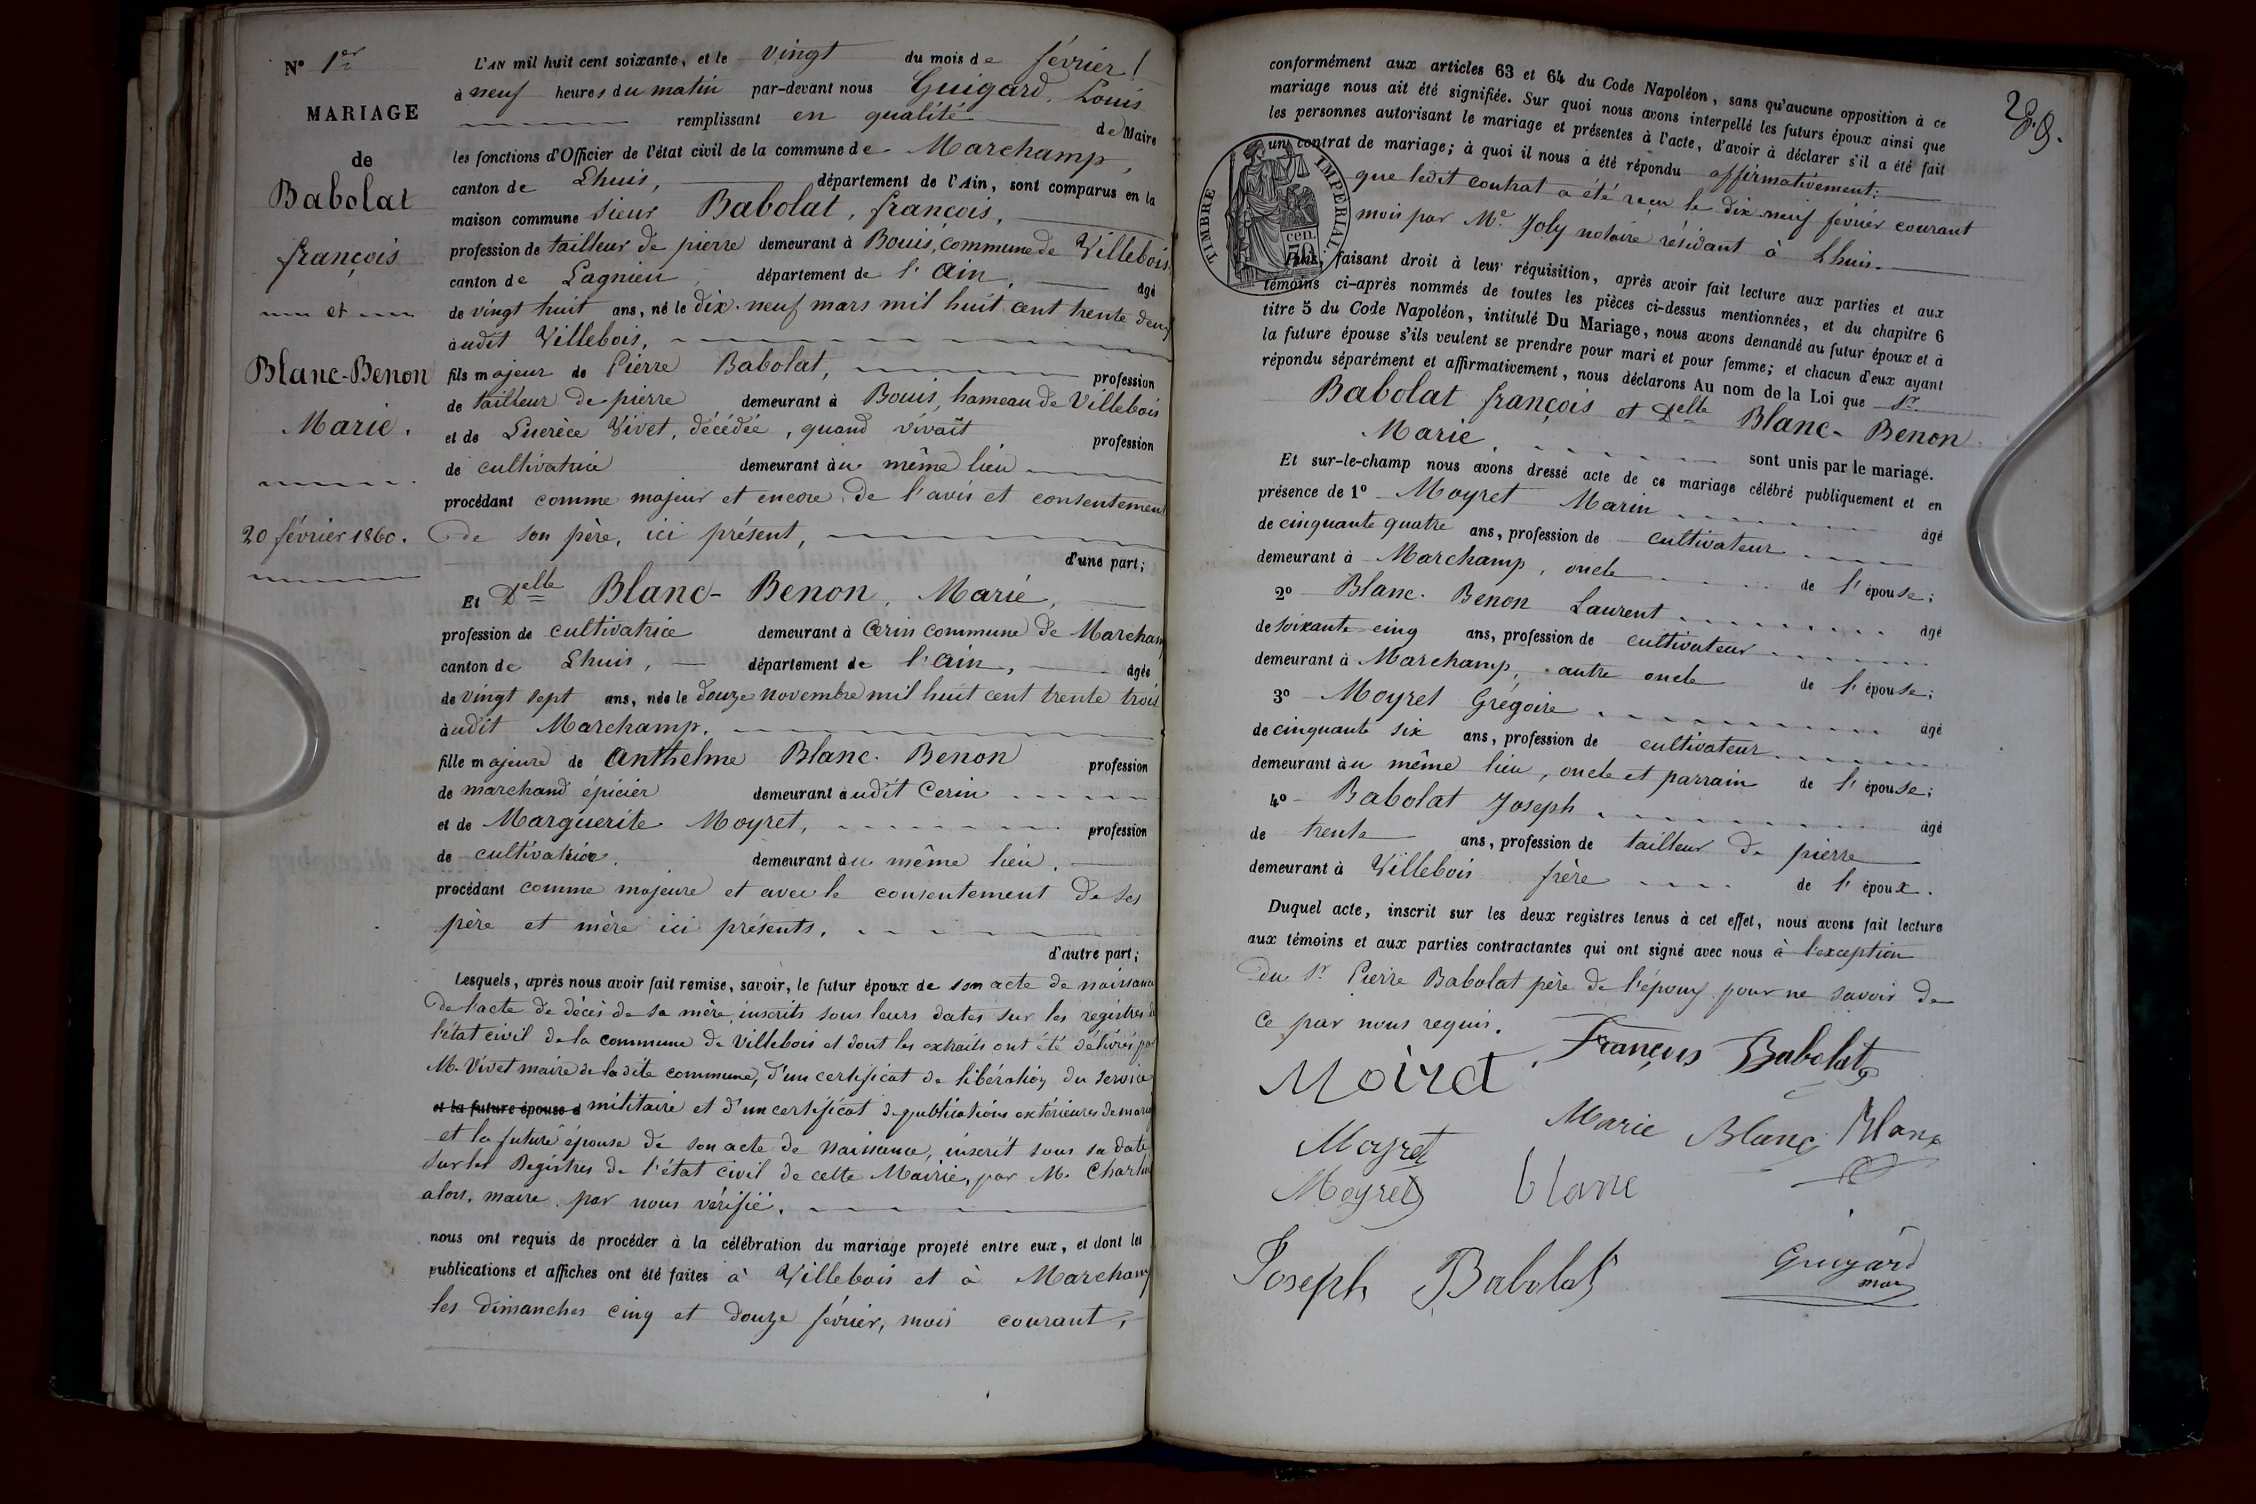 N° 1er
MARIAGE
de
Babolat
françois
et
Blanc-Benon
Marie.
20 février 1860.
L'AN mil huit cent soixante, et le vingt du mois de février
à neuf heures du matin par-devant nous Guigard, Louis
remplissant en qualité de Maire
les fonctions d'Officier de l'état civil de la commune de Marchamp,
canton de Lhuis, département de l'Ain, sont comparus en la
maison commune sieur Babolat, françois,
profession de tailleur de pierre demeurant à Bouis, commune de Villebois
canton de Lagnieu, département de l'Ain, âgé
de vingt huit ans, né le dix-neuf mars mil huit cent trente deux
audit Villebois,
fils majeur de Pierre Babolat, profession
de tailleur de pierre demeurant à Bouis, hameau de Villebois
et de Lucrèce Vivet, décédée, quand vivait profession
de cultivatrice demeurant au même lieu
procédant comme majeur et encore de l'avis et consentement
de son père, ici présent,
d'une part;
Et Delle Blanc-Benon, Marie,
profession de cultivatrice demeurant à Cerin commune de Marchamp
canton de Lhuis, département de l'Ain, âgée
de vingt sept ans, née le douze novembre mil huit cent trente trois
audit Marchamp.
fille majeure de Anthelme Blanc-Benon profession
de marchand épicier demeurant audit Cerin
et de Marguerite Moyret, profession
de cultivatrice. demeurant au même lieu.
procédant comme majeure et avec le consentement de ses
père et mère ici présents.
d'autre part;
Lesquels, après nous avoir fait remise, savoir, le futur époux de son acte de naissance
de l'acte de décès de sa mère, inscrits sous leurs dates sur les registres de
l'état civil de la commune de Villebois et dont les extraits ont été délivrés par
M. Vivet maire de la dite commune, d'un certificat de libération du service
et la future épouse d militaire et d'un certificat de publications extérieures de mariage
et la future épouse de son acte de naissance, inscrit sous sa date
sur les Registres de l'état civil de cette Mairie, par M. Charlin
alors, maire par nous vérifié.
nous ont requis de procéder à la célébration du mariage projeté entre eux, et dont les
publications et affiches ont été faites à Villebois et à Marchamp
les dimanches cinq et douze février, mois courant,
conformément aux articles 63 et 64 du Code Napoléon, sans qu'aucune opposition à ce
mariage nous ait été signifiée. Sur quoi nous avons interpellé les futurs époux ainsi que
les personnes autorisant le mariage et présentes à l'acte, d'avoir à déclarer s'il a été fait
un contrat de mariage; à quoi il nous a été répondu affirmativement:
que ledit contrat a été reçu le dix neuf février courant
mois par Me Joly notaire résidant à Lhuis.
TIMBRE IMPERIAL.
cen. 70
Puis, faisant droit à leur réquisition, après avoir fait lecture aux parties et aux
témoins ci-après nommés de toutes les pièces ci-dessus mentionnées, et du chapitre 6
titre 5 du Code Napoléon, intitulé Du Mariage, nous avons demandé au futur époux et à
la future épouse s'ils veulent se prendre pour mari et pour femme; et chacun d'eux ayant
répondu séparément et affirmativement, nous déclarons Au nom de la Loi que Sr.
Babolat françois et Delle Blanc-Benon
Marie, sont unis par le mariage.
Et sur-le-champ nous avons dressé acte de ce mariage célébré publiquement et en
présence de 1° Moyret Marin âgé
de cinquante quatre ans, profession de cultivateur
demeurant à Marchamp, oncle de l'épouse;
2° Blanc-Benon Laurent âgé
de soixante-cinq ans, profession de cultivateur
demeurant à Marchamp, autre oncle de l'épouse;
3° Moyret Grégoire âgé
de cinquante six ans, profession de cultivateur
demeurant au même lieu, oncle et parrain de l'épouse;
4° Babolat Joseph âgé
de trente ans, profession de tailleur de pierre
demeurant à Villebois frère de l'époux.
Duquel acte, inscrit sur les deux registres tenus à cet effet, nous avons fait lecture
aux témoins et aux parties contractantes qui ont signé avec nous à l'exception
du Sr Pierre Babolat père de l'époux pour ne savoir de
ce par nous requis.
François Babolat
Moiret
Marie Blanc Blanc
Moyret
Moyret blanc
Joseph Babolat
Guigard
maire